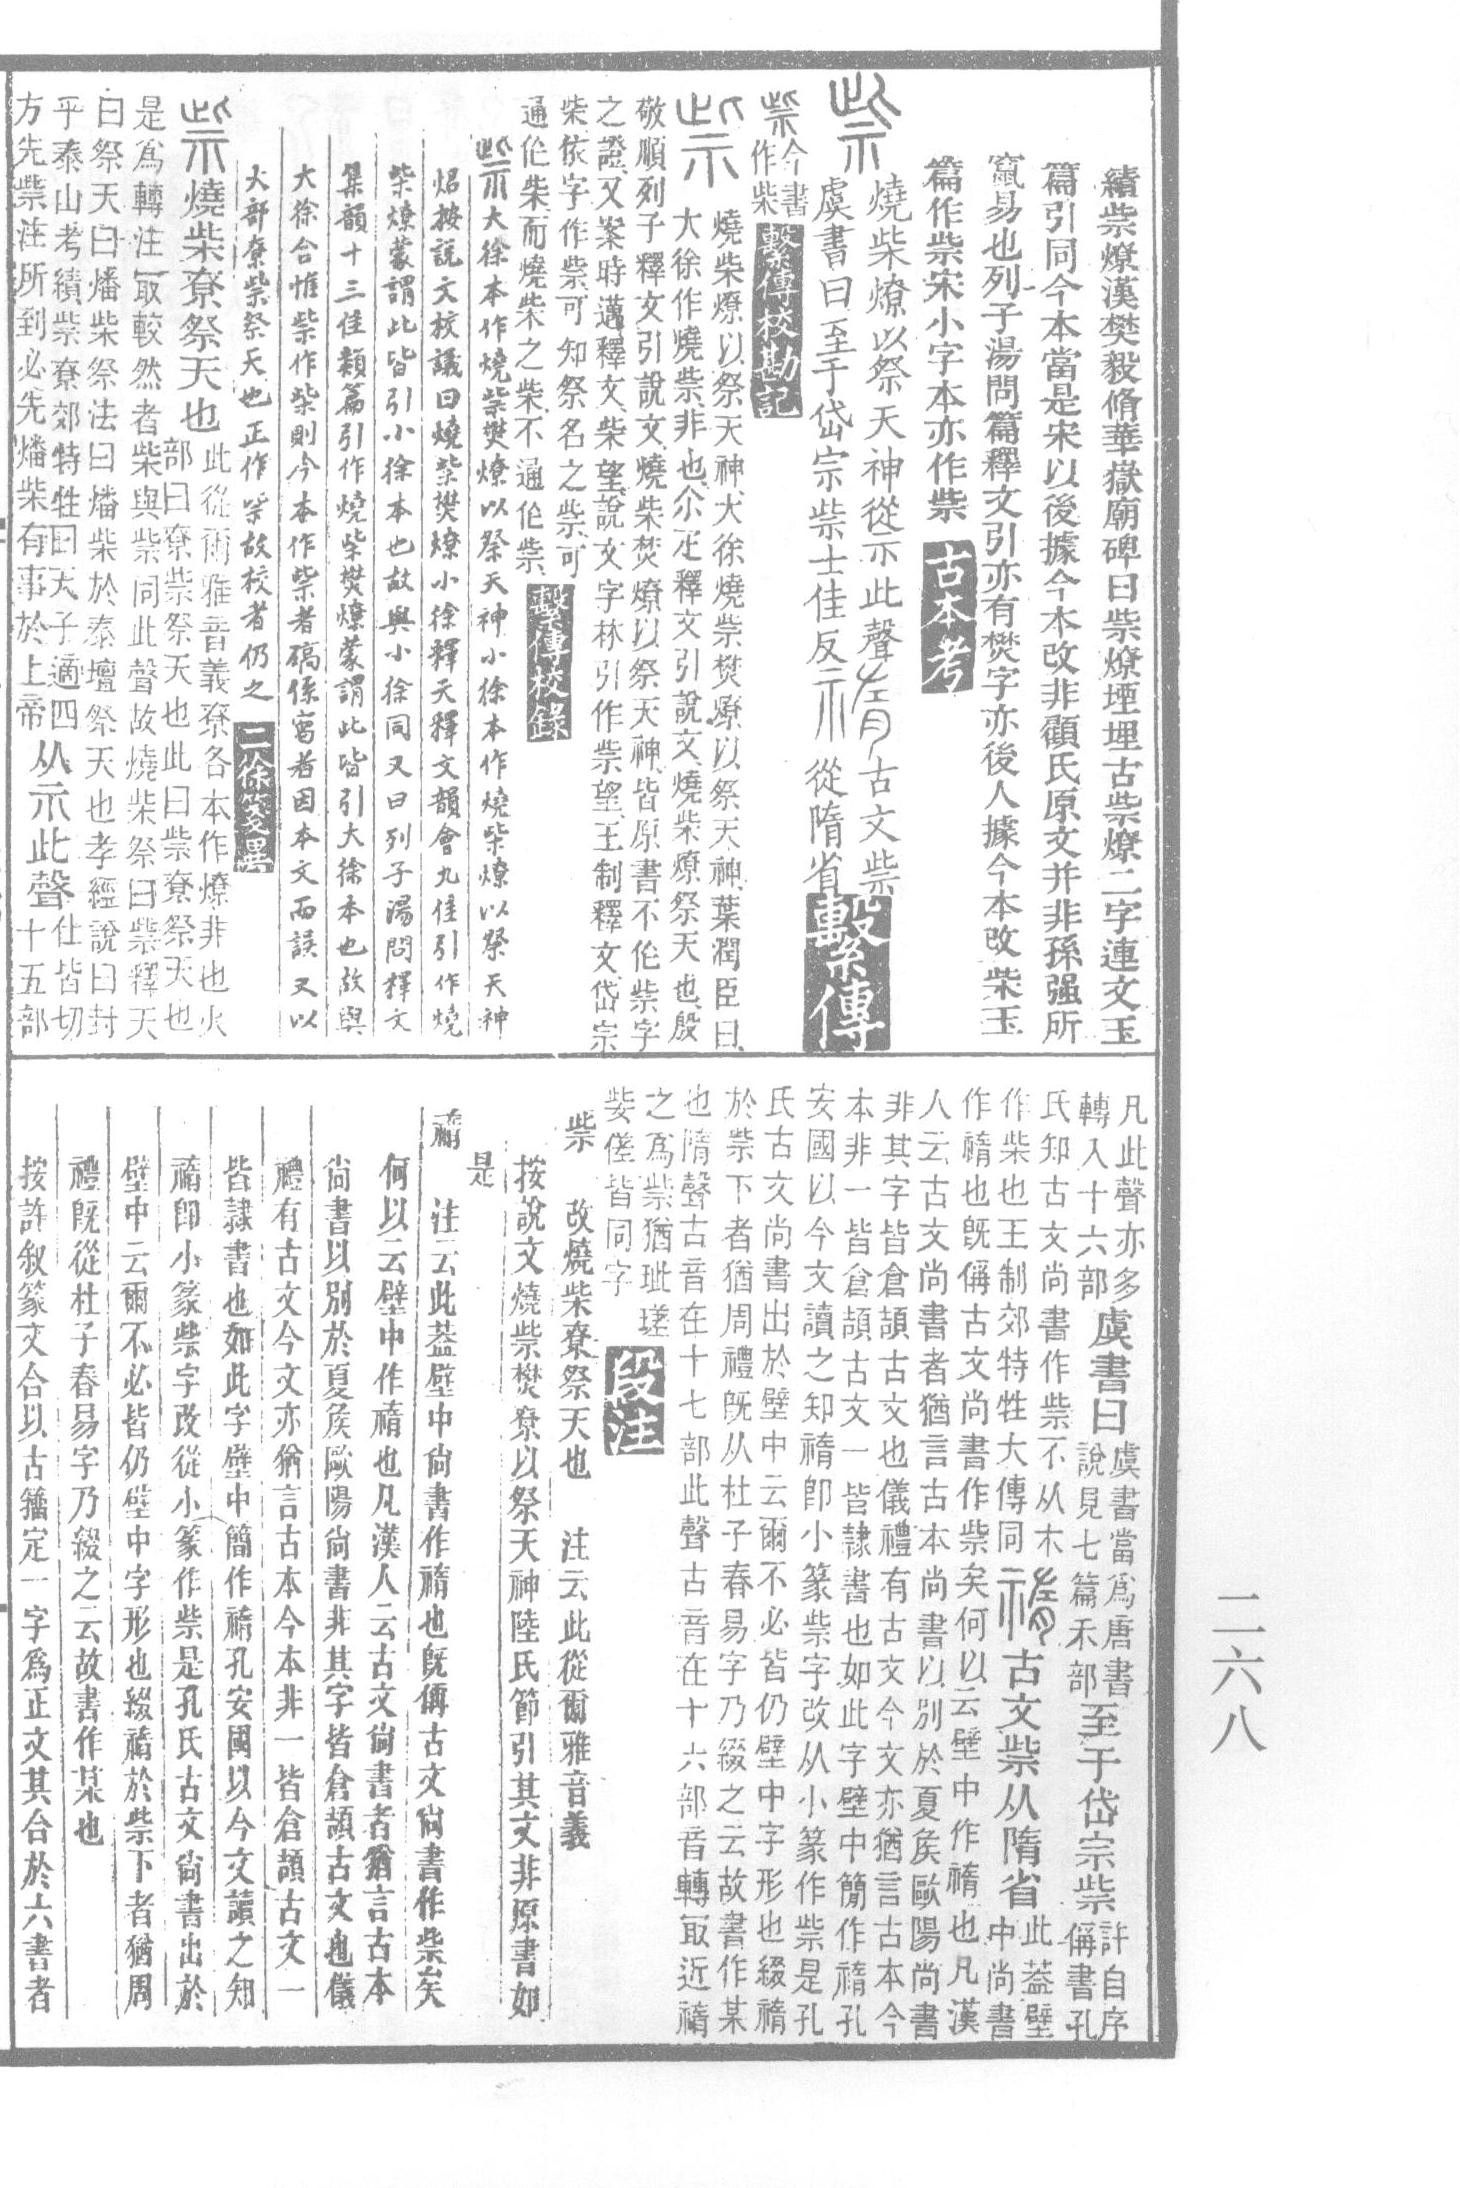 續祡燎漢樊毅脩華嶽廟碑曰祡燎堙埋古祡燎二字連文玉
篇引同今本當是宋以後據今本改非顧氏原文幷非孫强所
竄易也列子湯問篇釋文引亦有焚字亦後人據今本改柴玉
篇作祡宋小字本亦作祡 古本考
燒柴燎以祭天神從示此聲 古文祡
虞書曰至于岱宗祡士佳反 從隋省 繫傳
祡今書
作柴 繫傳校勘記
燒柴燎以祭天神大徐燒祡焚燎以祭天神葉潤臣曰
大徐作燒祡非也尒疋釋文引說文燒柴燎祭天也殷
敬順列子釋文引說文燒柴焚燎以祭天神皆原書不作祡字
之證又案時邁釋文柴望說文字林引作祡望王制釋文岱宗
柴依字作祡可知祭名之祡可
通作柴而燒柴之柴不通作祡 繫傳校錄
大徐本作燒祡樊燎以祭天神小徐本作燒柴燎以祭天神
炤按說文校議曰燒祡樊燎小徐釋天釋文韻會九佳引作燒
柴燎蒙謂此皆引小徐本也故與小徐同又曰列子湯問釋文
集韻十三佳類篇引作燒柴焚燎蒙謂此皆引大徐本也故與
大徐合惟祡作柴則今本作祡者碻係寫者因本文而誤又以
火部尞柴祭天也正作柴故校者仍之 二徐箋異
祡燒柴尞祭天也
此從爾雅音義尞各本作燎非也火
部曰尞柴祭天也此曰祡尞祭天也
是爲轉注冣較然者柴與祡同此聲故燒柴祭曰祡釋天
曰祭天曰燔柴祭法曰燔柴於泰壇祭天也孝經說曰封
乎泰山考績柴尞郊特牲曰天子適四
方先柴注所到必先燔柴有事於上帝
从示此聲
仕皆切
十五部
凡此聲亦多
轉入十六部
虞書曰
虞書當爲唐書
說見七篇禾部
至于岱宗祡
許自序
偁書孔
氏知古文尚書作祡不从木
作柴也王制郊特牲大傳同
古文祡从隋省
此葢壁
中尚書
作䄔也旣偁古文尚書作祡矣何以云壁中作䄔也凡漢
人云古文尚書者猶言古本尚書以別於夏矦歐陽尚書
非其字皆倉頡古文也儀禮有古文今文亦猶言古本今
本非一皆倉頡古文一皆隸書也如此字壁中簡作䄔孔
安國以今文讀之知䄔卽小篆祡字改从小篆作祡是孔
氏古文尚書出於壁中云爾不必皆仍壁中字形也綴䄔
於祡下者猶周禮旣从杜子春易字乃綴之云故書作某
也隋聲古音在十七部此聲古音在十六部音轉冣近䄔
之爲祡猶玼瑳
姕傞皆同字 段注
祡
改燒柴尞祭天也 注云此從爾雅音義
按說文燒祡焚尞以祭天神陸氏節引其文非原書如
是
䄔
注云此葢壁中尙書作䄔也旣偁古文尙書作祡矣
何以云壁中作䄔也凡漢人云古文尙書者猶言古本
尙書以別於夏矦歐陽尙書非其字皆倉頡古文也儀
禮有古文今文亦猶言古本今本非一皆倉頡古文一
皆隸書也如此字壁中簡作䄔孔安國以今文讀之知
䄔卽小篆祡字改從小篆作祡是孔氏古文尙書出於
壁中云爾不必皆仍壁中字形也綴䄔於祡下者猶周
禮旣從杜子春易字乃綴之云故書作某也
按許敘篆文合以古籒定一字爲正文其合於六書者
二六八